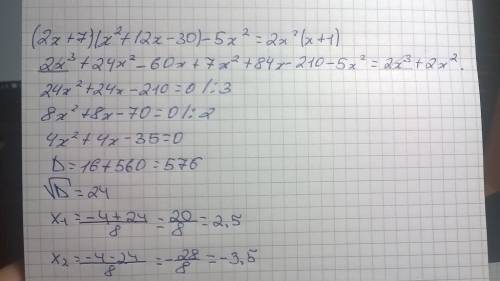 (2x+7)(x²+12x-30)-5x²=2x²(x+1)
2x³+24x²-60x+7x²+84x-210-5x²=2x³+2x².
24x²+24x-210=0 /:3
8x²+8x-70=0 /:2
4x²+4x-35=0
D=16+560=576
√D=24
x₁=(-4+24)/8=20/8=2,5
x₂=(-4-24)/8=-28/8=-3,5